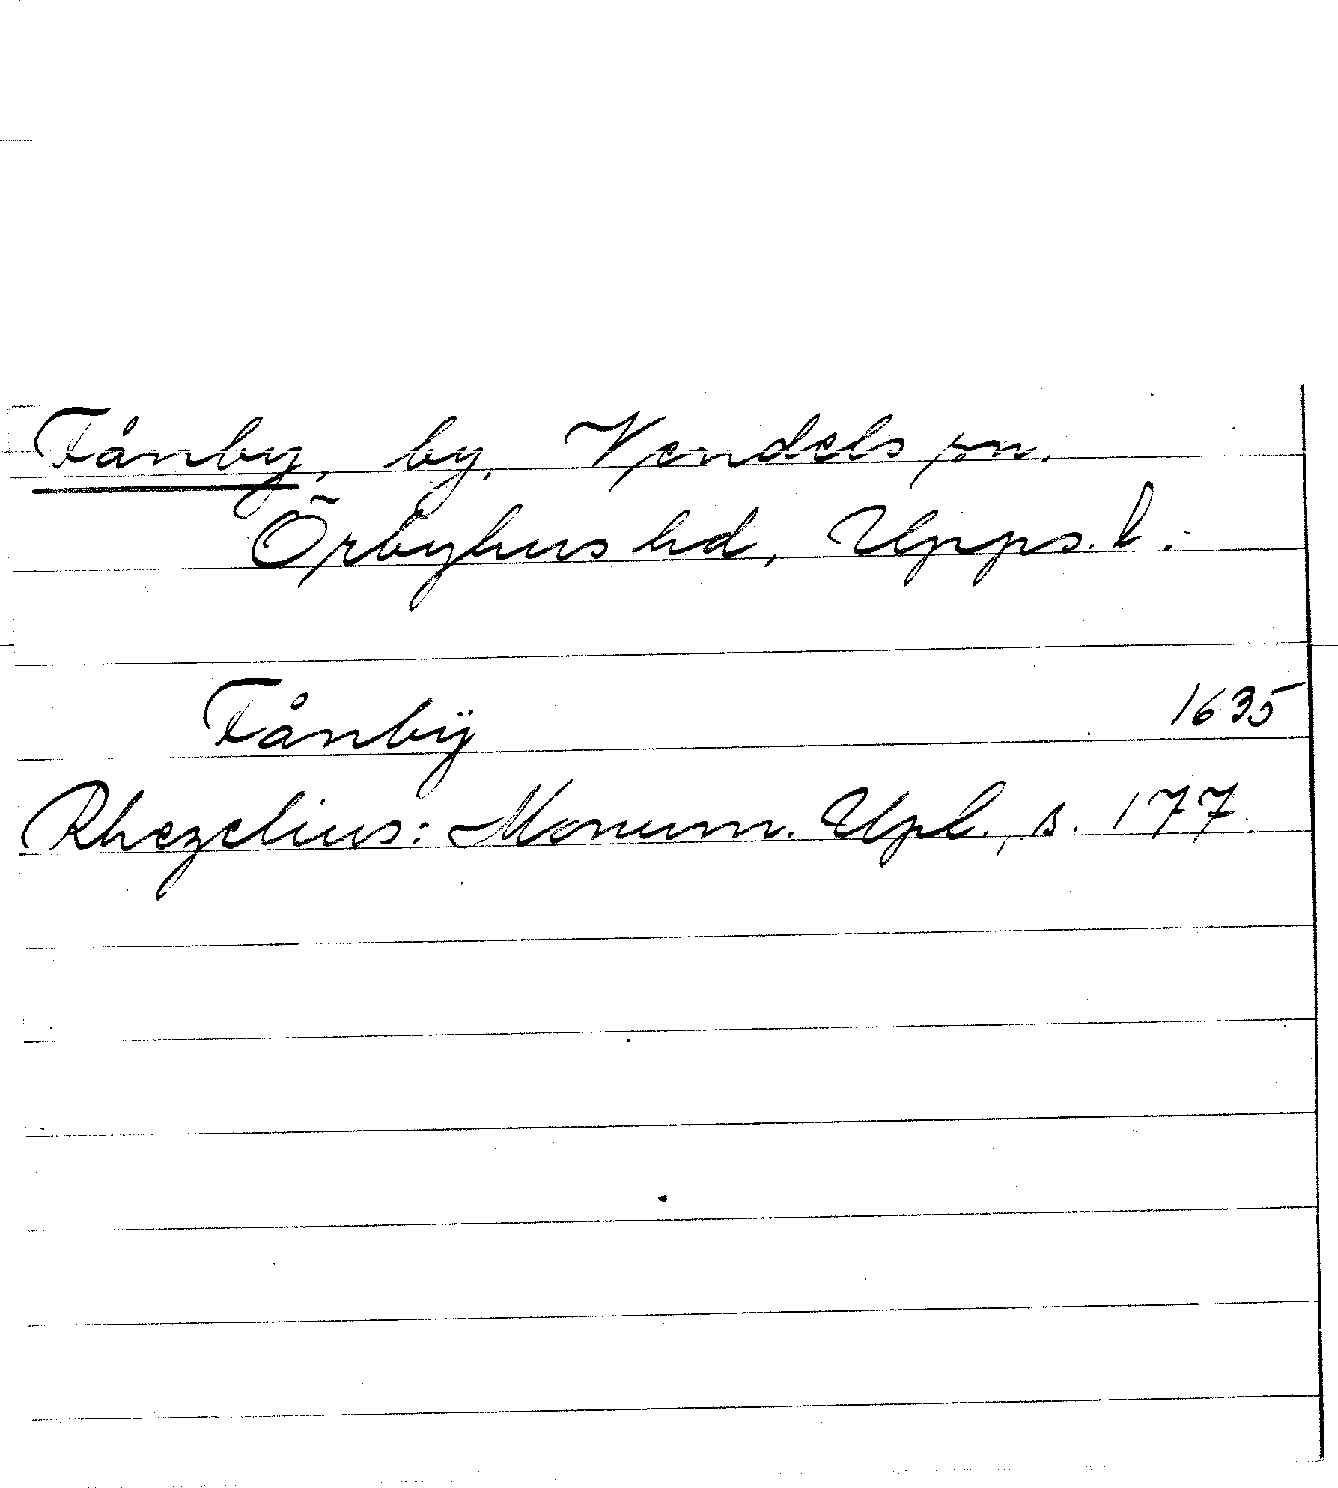 Fånby, by, Vendels sn.
Örbyhus hd, Upps. l.
Fånbÿ 1635
Rhezelius: Monum. Upl., s. 177.